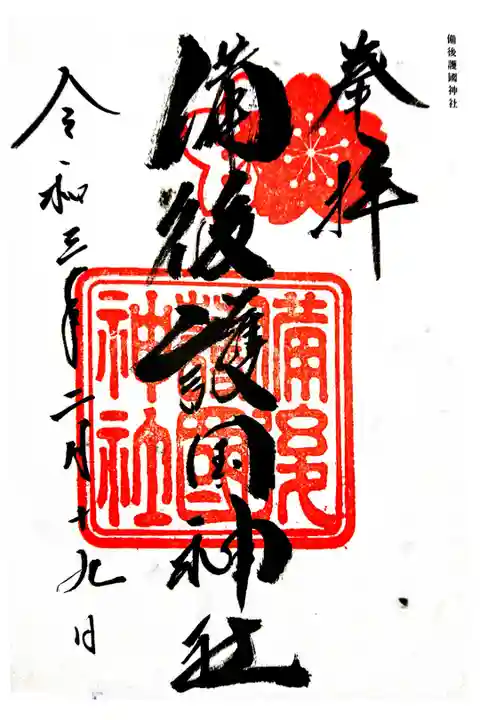 備後護國神社
奉拝
備後護国神社
備後
護國
神社
令和三年二月十九日